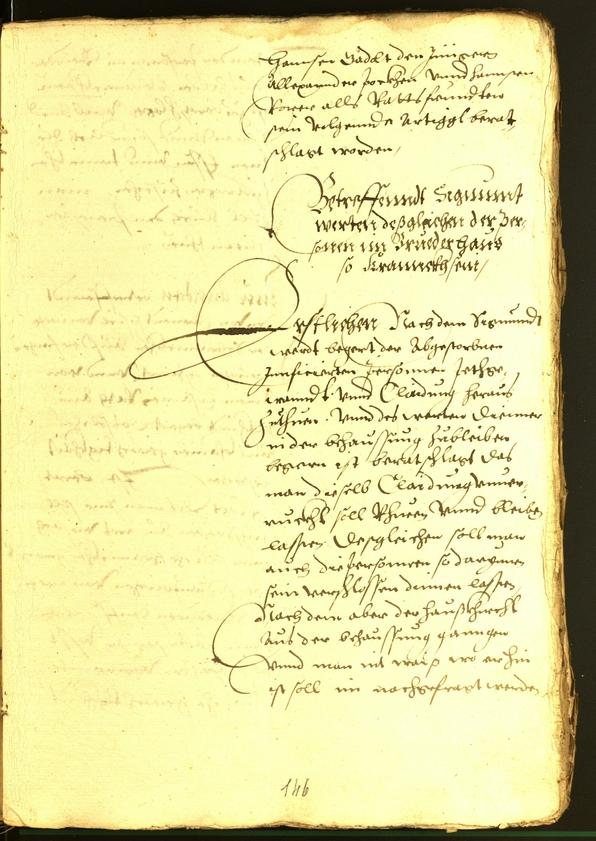 hannsen Gadolt den Jüngern
Allexannder Jöchen unnd hannsen
korer alls Ratts freundten
sein volgennde Artiggl berat-
schlagt worden,
Betreffenndt Sigmundt
werten desgleichen der Per-
sonen im Bruederhaus
so kranneth sein,
Erstlichen Nachdem Sigmundt
werdt begert der Abgestorbnen
Inficierten personnen pethge-
wanndt unnd Claidung heraus
zuthuen. Unnd des werten Diener
in der behaussung zubleiben
begern ist beratschlagt das
man dieselb Claidung unver-
ruckht soll Rhuen unnd bleiben
lassen. Desgleichen soll man
auch die personnen so darynnen
sein verschlossen dinnen lassen,
Nachdem aber der hausknecht
Aus der behaussung ganngen
Unnd man nit waiss wo er hin
ist soll im nachgefragt werden
146